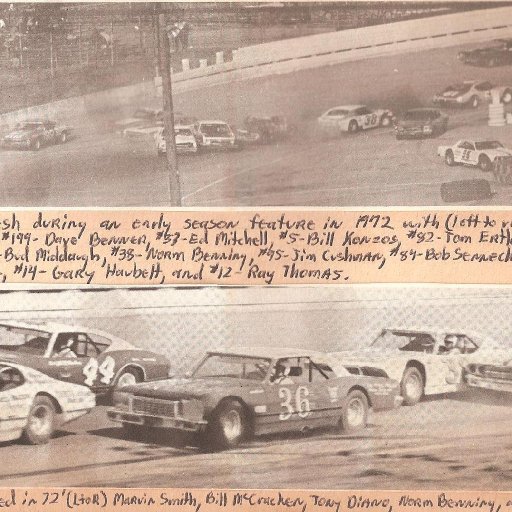 38
sh during an early season feature in 1972 with (left to ri
#199- Dave Benner, #53-Ed Mitchell, #5-Bill Konzos, #82-Tom Ertle
-Bud Middaugh, #38-Norm Benning, #95-Jim Cushman, #84-Bob Senneck
#14- Gary Haubett, and #12- Ray Thomas.
44
36
ed in 72' (LtoR) Marvin Smith, Bill McCracken, Tony Diano, Norm Benning, a